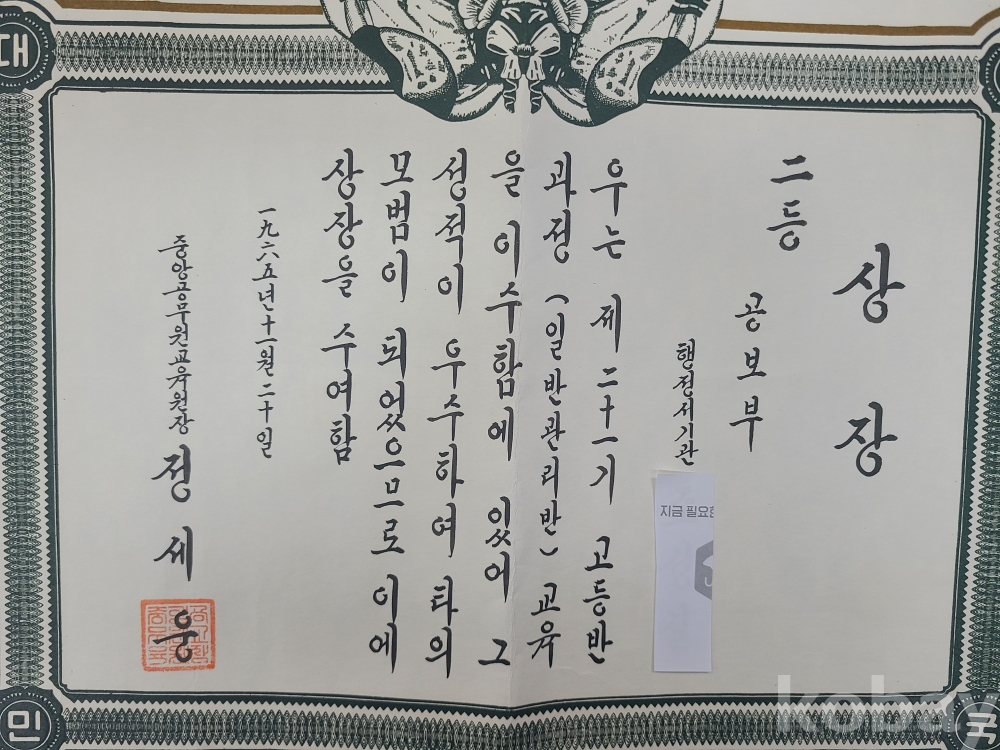 상장
二등
공보부
행정서기관
지금 필요한
우는 제二十一기 고등반
과정 (일반관리반) 교육
을 이수함에 있어 그
성적이 우수하여 타의
모범이 되었으므로 이에
상장을 수여함
一九六五년十一월二十일
중앙공무원교육원장 정세웅
대
민
국
kobay